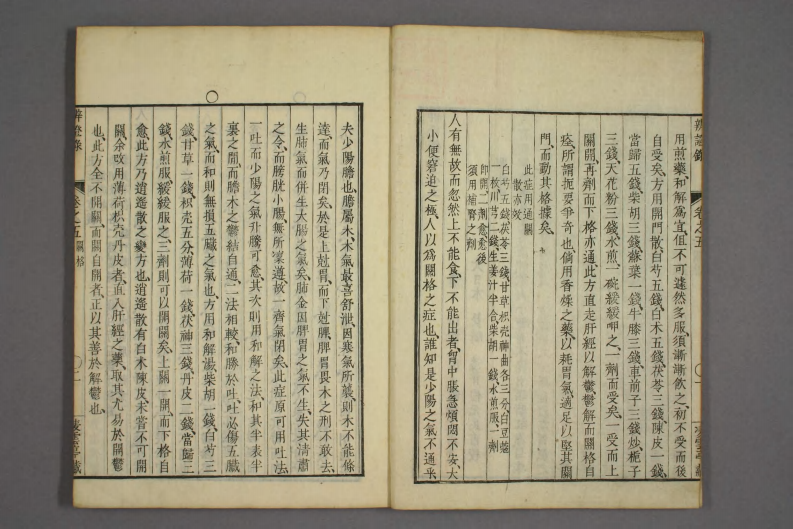 辨證錄
卷之五
用煎藥和解爲宜但不可遽然多服須漸漸飲之初不受而後
自受矣方用開門散白芍五錢白朮五錢茯苓三錢陳皮一錢
當歸五錢柴胡三錢蘇葉一錢牛膝三錢車前子三錢炒梔子
三錢天花粉三錢水煎一碗緩緩呷之一劑而受矣一受而上
關開再劑而下格亦通此方直走肝經以解鬱鬱解而關格自
痊所謂扼要爭奇也倘用香燥之藥以耗胃氣適足以堅其關
門而動其格據矣
此症用通關
散亦效
白芍五錢茯苓三錢甘草枳壳神曲各三分白豆蔻
一枚川芎二錢生姜汁半合柴胡一錢水煎服一劑
即開二劑愈愈後
須用補腎之劑
人有無故而忽然上不能食下不能出者胷中脹急煩悶不安大
小便窘迫之極人以爲關格之症也誰知是少陽之氣不通乎
夫少陽膽也膽屬木木氣最喜舒泄因寒氣所襲則木不能條
達而氣乃閉矣於是上尅胃而下尅脾脾胃畏木之刑不敢去
生肺氣而併生大腸之氣矣肺金因脾胃之氣不生失其清肅
之令而膀胱小腸無所凜遵故一齊氣閉矣此症原可用吐法
一吐而少陽之氣升騰可愈其次則用和解之法和其半表半
裏之間而膽木之鬱結自通二法相較和勝於吐吐必傷五臟
之氣而和則無損五臟之氣也方用和解湯柴胡一錢白芍三
錢甘草一錢枳壳五分薄荷一錢茯神三錢丹皮二錢當歸三
錢水煎服緩緩服之三劑則可以開關矣上關一開而下格自
愈此方乃逍遙散之變方也逍遙散有白朮陳皮未嘗不可開
關余改用薄荷枳壳丹皮者直入肝經之藥取其尤易於開鬱
也此方全不開關而關自開者正以其善於解鬱也
卷之五
關格